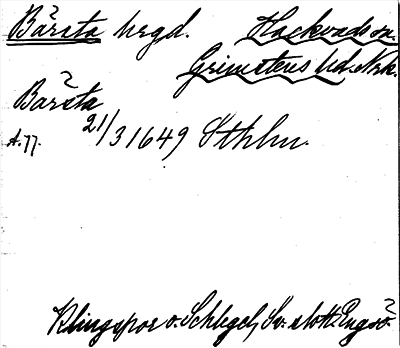 Bärsta hrgd. Hackvads sn.
Grimstens hd. Nrk.
Bärsta
21/3 1649 Sthlm.
A. 77.
Klingspor o. Schlegel, Sv. slott. Engsö.